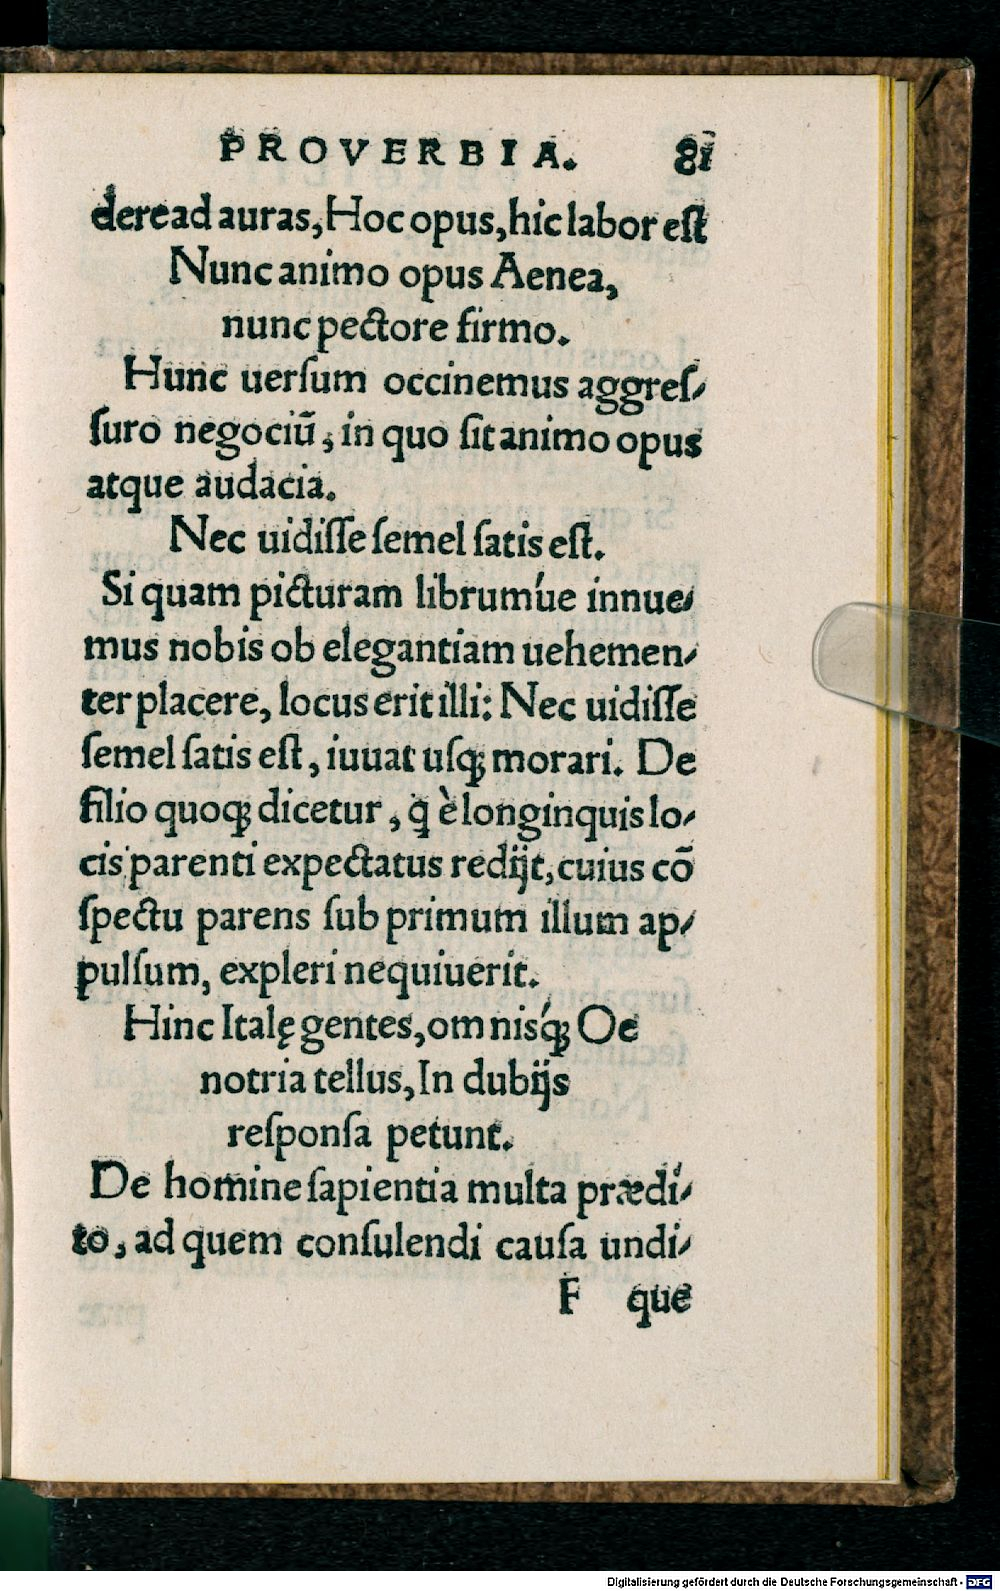 PROVERBIA. 81
dere ad auras, Hoc opus, hic labor eſt
Nunc animo opus Aenea,
nunc pectore firmo.
Hunc uerſum occinemus aggreſ⸗
ſuro negociũ, in quo ſit animo opus
atque audacia.
Nec uidiſſe ſemel ſatis eſt.
Si quam picturam librum'ue innue⸗
mus nobis ob elegantiam uehemen⸗
ter placere, locus erit illi: Nec uidiſſe
ſemel ſatis eſt, iuuat uſq; morari. De
filio quoq; dicetur, q̃ è longinquis lo⸗
cis parenti expectatus redijt, cuius cõ
ſpectu parens ſub primum illum ap⸗
pulſum, expleri nequiuerit.
Hinc Italę gentes, omnisq́; Oe
notria tellus, In dubijs
reſponſa petunt.
De homine ſapientia multa prædi⸗
to, ad quem conſulendi cauſa undi⸗
F que
Digitalisierung gefördert durch die Deutsche Forschungsgemeinschaft - DFG